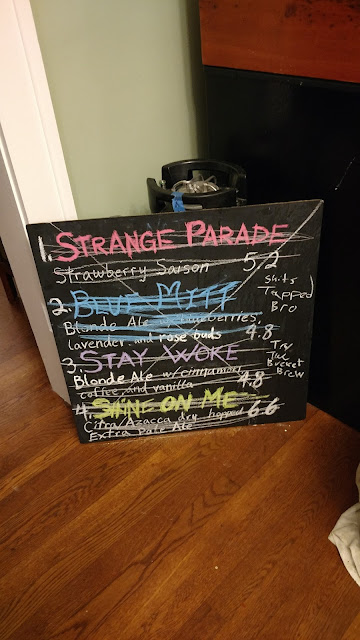 1. STRANGE PARADE
Strawberry Saison 5.2
2. BLUE MITT
Blonde Ale w/ blueberries,
lavender and rose buds 4.8
3. STAY WOKE
Blonde Ale w/cinnamon,
coffee, and vanilla 4.8
4. SHINE ON ME
Citra/Azacca dry hopped 6.6
Extra Pale Ale
Shits
Tapped
Bro
Try
The
Bucket
Brew